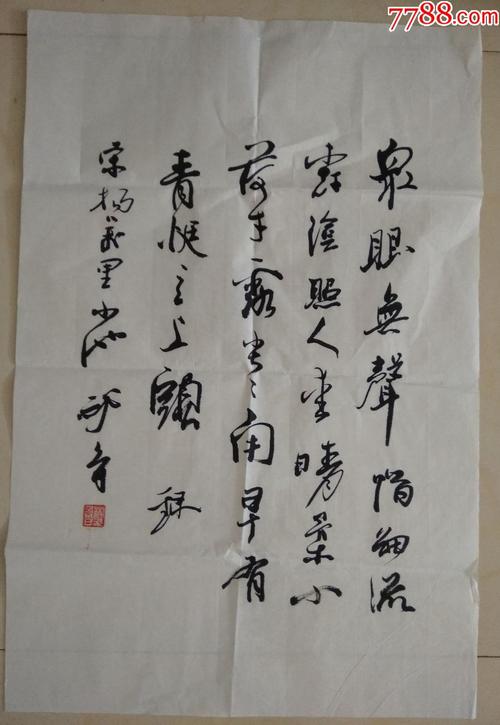 7788.com
泉眼無聲惜細流
樹陰照水愛晴柔小
荷才露尖〻角早有
青蜓立上頭
宋楊萬里小池